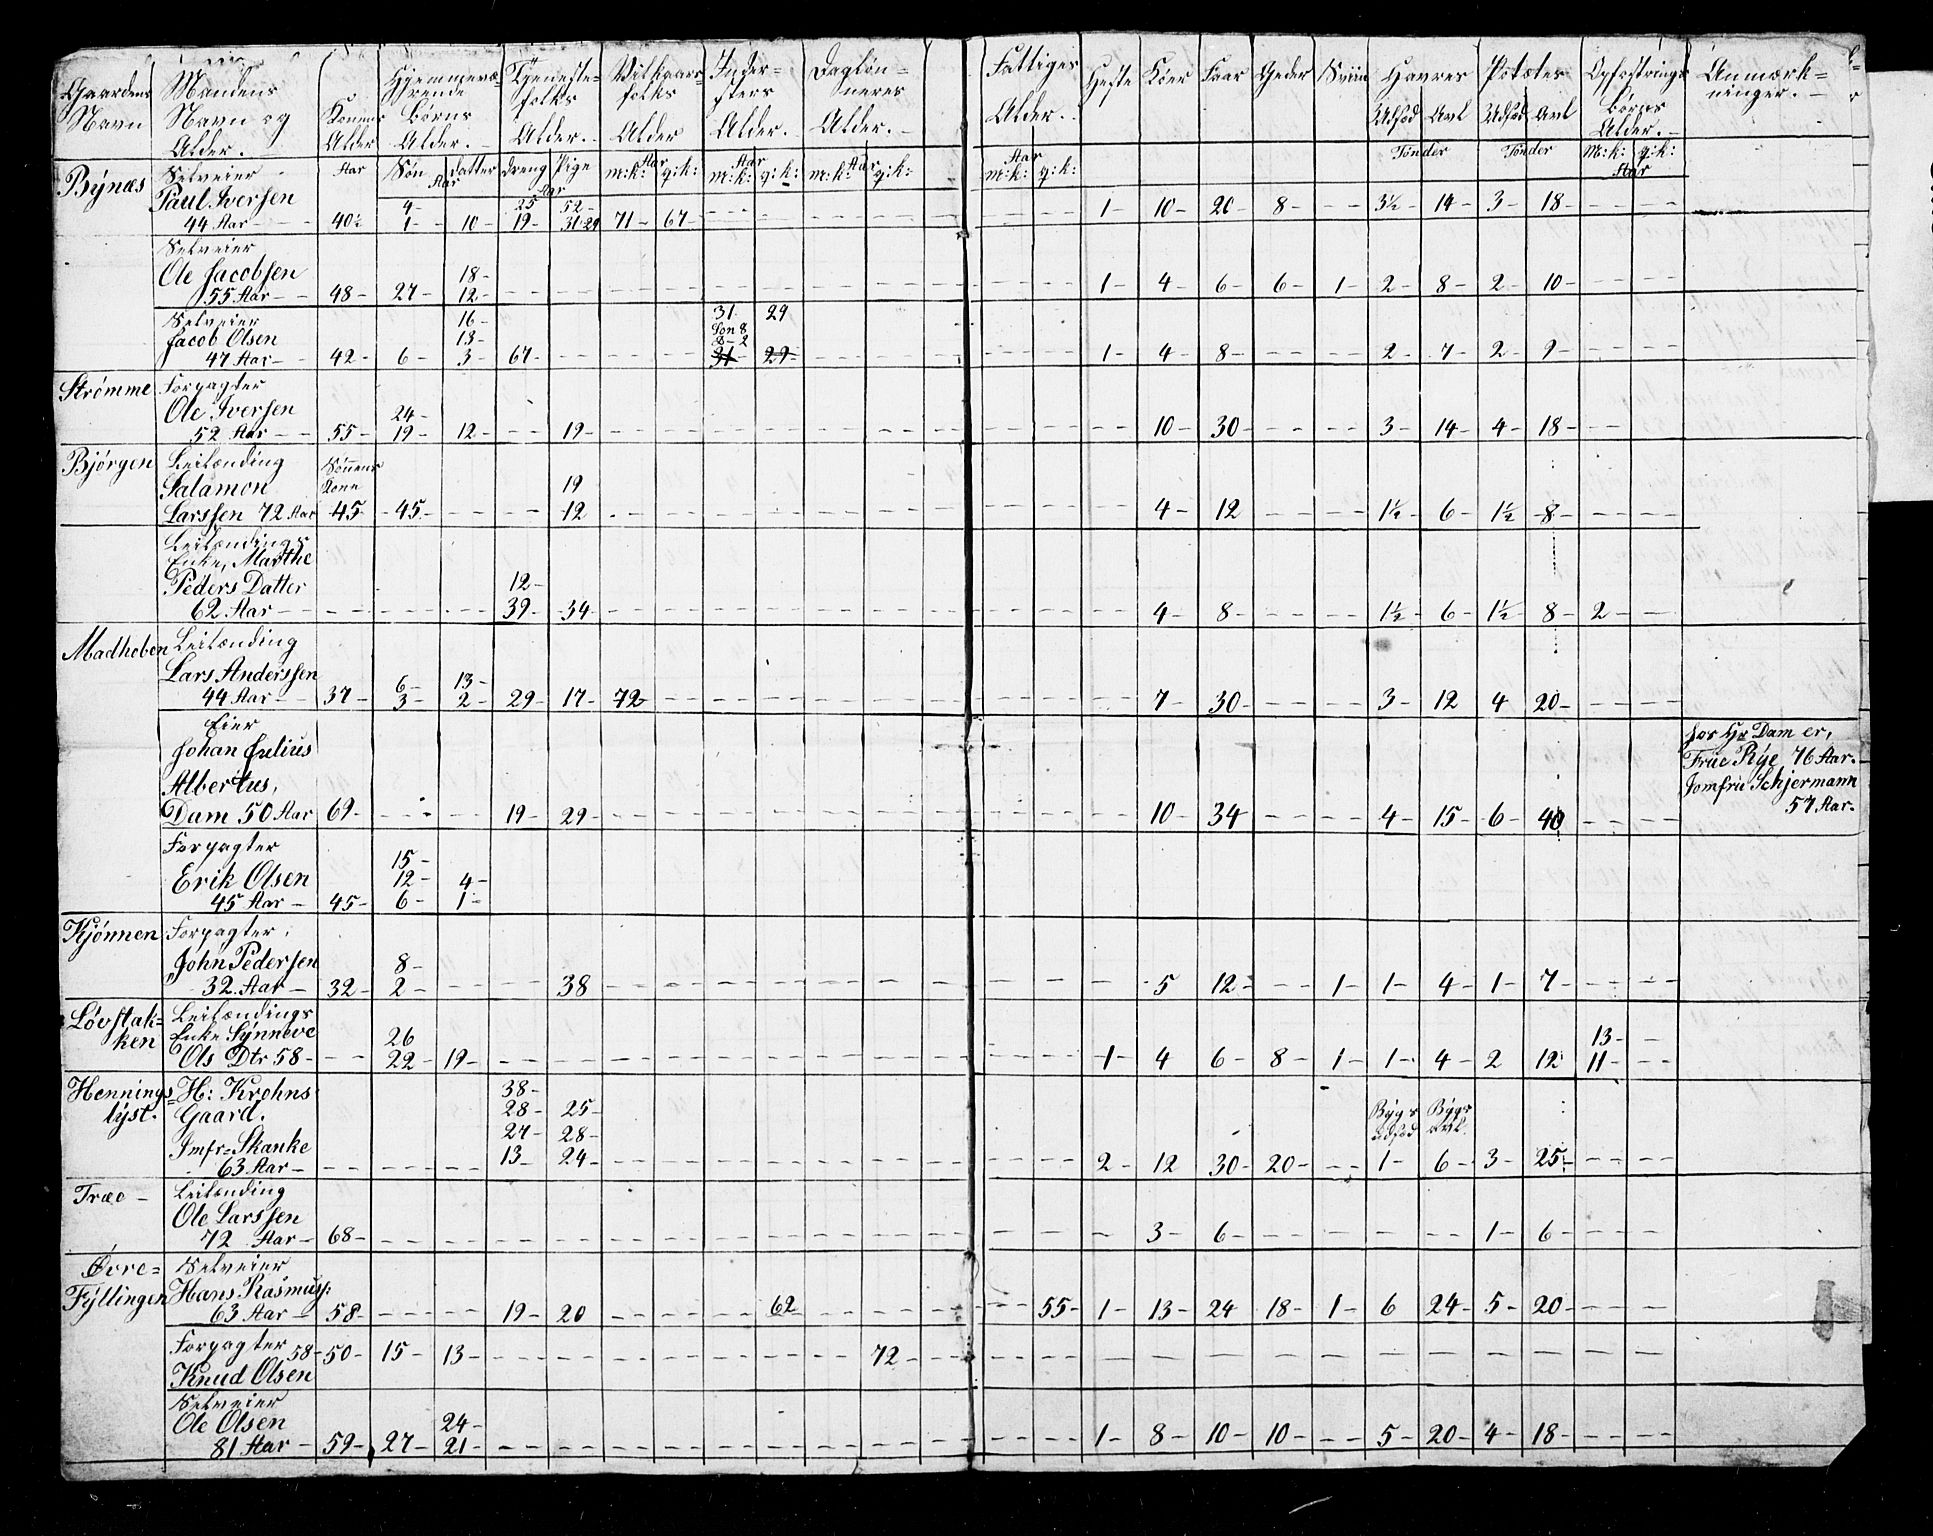 Gaardens Navn | Mandens Navn og Alder. | Konens Alder | Hjemmeværende Børns Alder. | Tjenestefolks Alder. | Vilkaarsfolks Alder | Indersters Alder. | Dagløneres Alder. | Fattiges Alder. | Heste | Köer | Faar | Geder | Sviin | Havres Udsæd Avl | Potetes Udsæd Avl | Opfostrings Børns Alder. | Anmærkninger.
Aar | Søn Datter Aar | Dreng Pige Aar | m:k: Aar q:k: | m:k: Aar q:k: | m:k: Aar q:k: | Aar m:k: q:k: | Tønder | Tønder | M:k: q:k: Aar
Bÿnæs | Selveier
Paul Iversen | 4 - | 25 52 - | 1 - 10 - 20 - 8 - - - 3½ - 14 - 3 - 18 - - - -
44 Aar - | 40½ | 1 - 10 - | 19 - 31 29 | 71 - 67 - - - -
Selveier
Ole Jacobsen | 18 -
55 Aar - - 48 - 27 - 12 - - - | 1 - 4 - 6 - 6 - 1 - 2 - 8 - 2 - 10 - - - -
Selveier | 16 - | 31 29
Jacob Olsen | 13 - | Søn 8
8 - 2
47 Aar - 42 - 6 - 3 - 67 - - - 31 - 29 - | 1 - 4 - 8 - - - - 2 - 7 - 2 - 9 -
Strømme | Forpagter
Ole Iversen | 24 -
52 Aar - - 55 - 19 - 12 - - - 19 - | 10 - 30 - - - - 3 - 14 - 4 - 18 - - -
Bjørgen | Leilænding | Sønnens
Salamon | Kone | 19
Larssen 72 Aar 45 - 45 - - - - 12 | 4 - 12 - - - - 1½ - 6 - 1½ - 8 - - - -
Leilændings
Enke, Marthe
Peders Datter | 12 -
62 Aar - - - - - 39 - 34 - - - | 4 - 8 - - - - 1½ - 6 - 1½ - 8 - 2 - -
Madhoben | Leilænding
Lars Anderssen | 6 - 13 -
44 Aar - - 37 - 3 - 2 - 29 - 17 - 72 - - - | 7 - 30 - - - - 3 - 12 4 20 - - - -
Eier | hos Hr Dam er,
Johan Julius | Frue Rÿe 76 Aar.
Albertus, | Jomfru Schjermann
Dam 50 Aar 69 - - - - 19 - 29 - | 10 - 34 - - - 4 - 15 - 6 - 40 - - - | 57 Aar.
Forpagter | 15 -
Erik Olsen | 12 - 4 -
45 Aar - 45 - 6 - 1 -
Kjönnen | Forpagter
John Pedersen | 8 -
32 Aar - 32 - 2 - - - - 38 - - - | 5 12 - - - 1 - 1 - 4 - 1 - 7 - - - -
Lövstakken | Leilændings
Enke Sÿnneve | 26 | 13 - -
Ols Dtr 58 - - - 22 - 19 - - - | 1 - 4 6 - 8 - 1 - 1 - 4 - 2 12 11 - - -
Henningslÿst. | H: Krohns | 38 -
Gaard. | 28 - 25 - | Bÿgs Bÿgs
Jmfr= Skanke | 27 - 28 - | udsæd avl.
63 Aar - - - - - 13 - 24 - - - | 2 - 12 30 - 20 - - - 1 - 6 - 3 - 25 - - - -
Træe - | Leilænding
Ole Larssen
72 Aar - 68 - - - | 3 - 6 - - - - - - 1 - 6 - - - -
Øvre= | Selveier
Fÿllingen | Hans Rasmus:
63 Aar - 58 - - - - 19 - 20 - - - 62 - - - 55 - 1 - 13 - 24 18 - 1 - 6 24 - 5 - 20 - - - -
Forpagter 58 - 50 - 15 - 13 - - - 72 - - -
Knud Olsen
Selveier
Ole Olsen | 24 -
81 Aar - 59 - 27 - 21 - - - | 1 - 8 - 10 - 10 - - - 5 - 20 - 4 - 18 - - - -